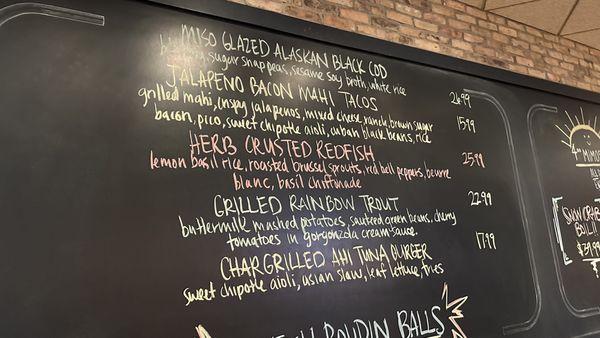 MISO GLAZED ALASKAN BLACK COD
sugar snap peas, sesame soy broth, white rice 26.99
JALAPENO BACON MAHI TACOS
grilled mahi, crispy jalapenos, mixed cheese, ranch, brown sugar 15.99
bacon, pico, sweet chipotle aioli, cuban black beans, rice
HERB CRUSTED REDFISH
lemon basil rice, roasted brussel sprouts, red bell peppers, beurre 25.99
blanc, basil chiffonade
GRILLED RAINBOW TROUT
buttermilk mashed potatoes, sauteed green beans, cherry 22.99
tomatoes in gorgonzola cream sauce.
CHARGRILLED AHI TUNA BURGER 17.99
sweet chipotle aioli, asian slaw, leaf lettuce, fries
BOUDIN BALLS
SNOW CRAB
BOIL!!